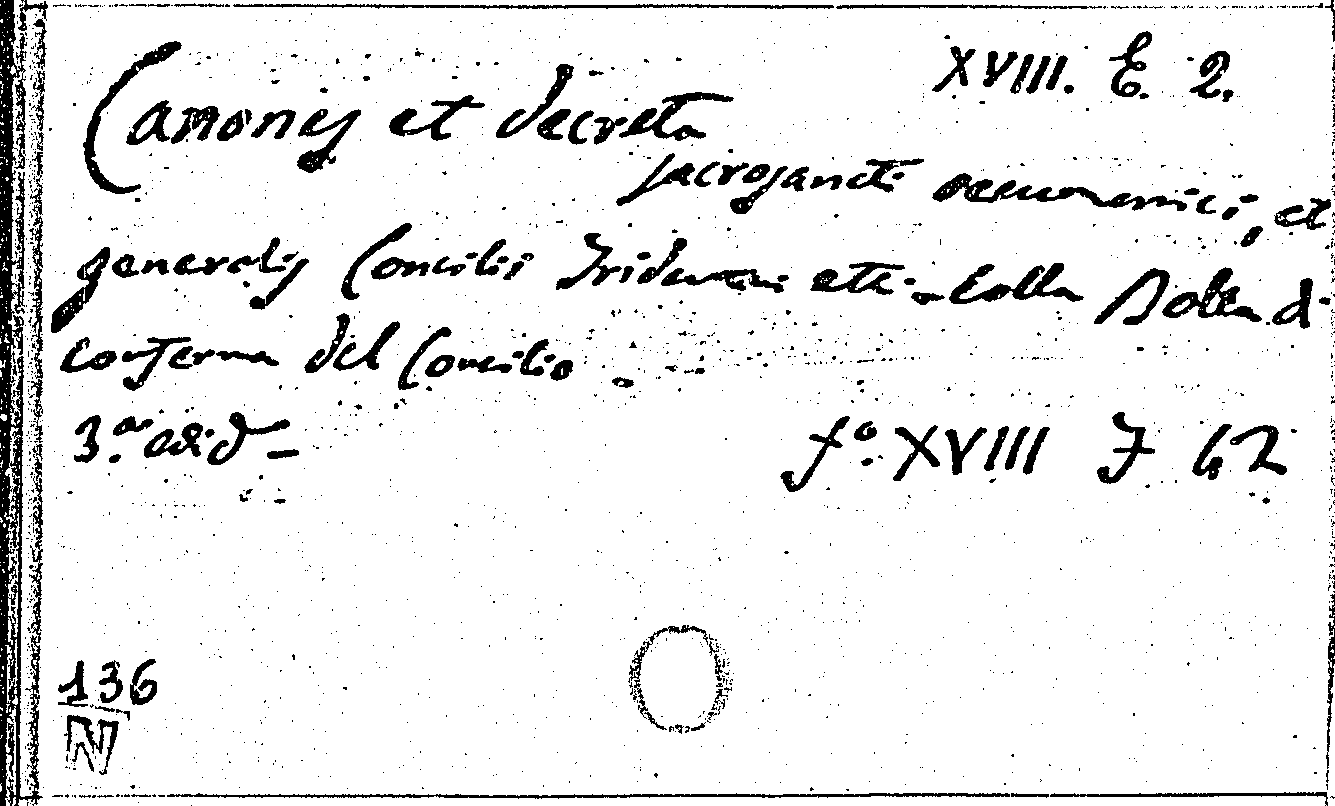 XVIII. E. 2.
Canones et decreta
sacrosancti oecumenici, et
generalis Concilii Tridentini etc. Colla Bolla di
conferma del Concilio -
3.a ediz -
f.o XVIII J 62
136
N